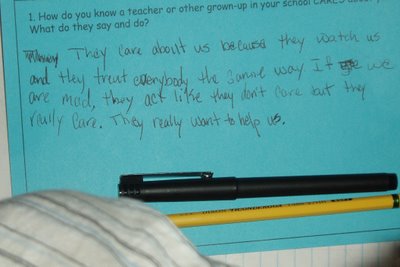 1. How do you know a teacher or other grown-up in your school CARES about
What do they say and do?
They Care about us because they watch us
and they treat everybody the same way If we
are mad, they act like they don't Care but they
really Care. They really want to help us.
TICONDEROGA